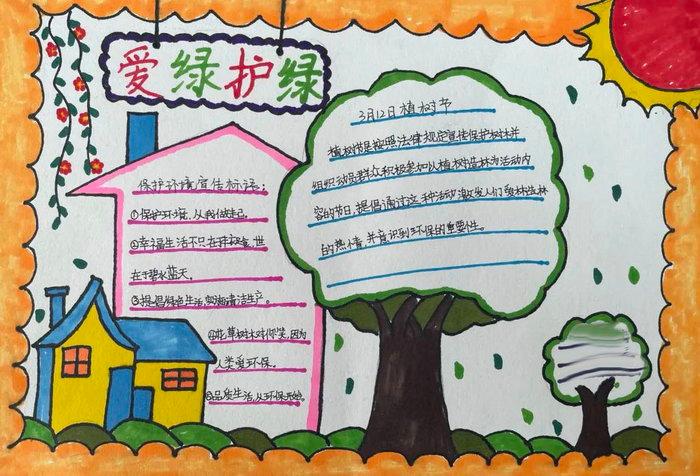 爱绿护绿
3月12日植树节
植树节是按照法律规定宣传保护树木并
组织动员群众积极参加以植树造林为活动内
容的节日。提倡通过这种活动,激发人们爱林造林
的热情,并意识到环保的重要性。
保护环境宣传标语:
①保护环境,从我做起。
②幸福生活不只在丰衣足食,也
在于碧水蓝天。
③提倡绿色生活,实施清洁生产。
④花草树木对你笑,因为
人类爱环保。
⑤品质生活从环保开始。